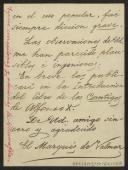 en el uso popular, fue
siempre diccion grata.
Las observaciones de Vd.
me han parecido plau-
sibles e ingeniosas.
En breve, les publi-
caré en la Introducción
del libro de las Cantigas
de Alfonso X.
De Vd. amigo sin-
cero y agradecido
El Marqués de Valmar